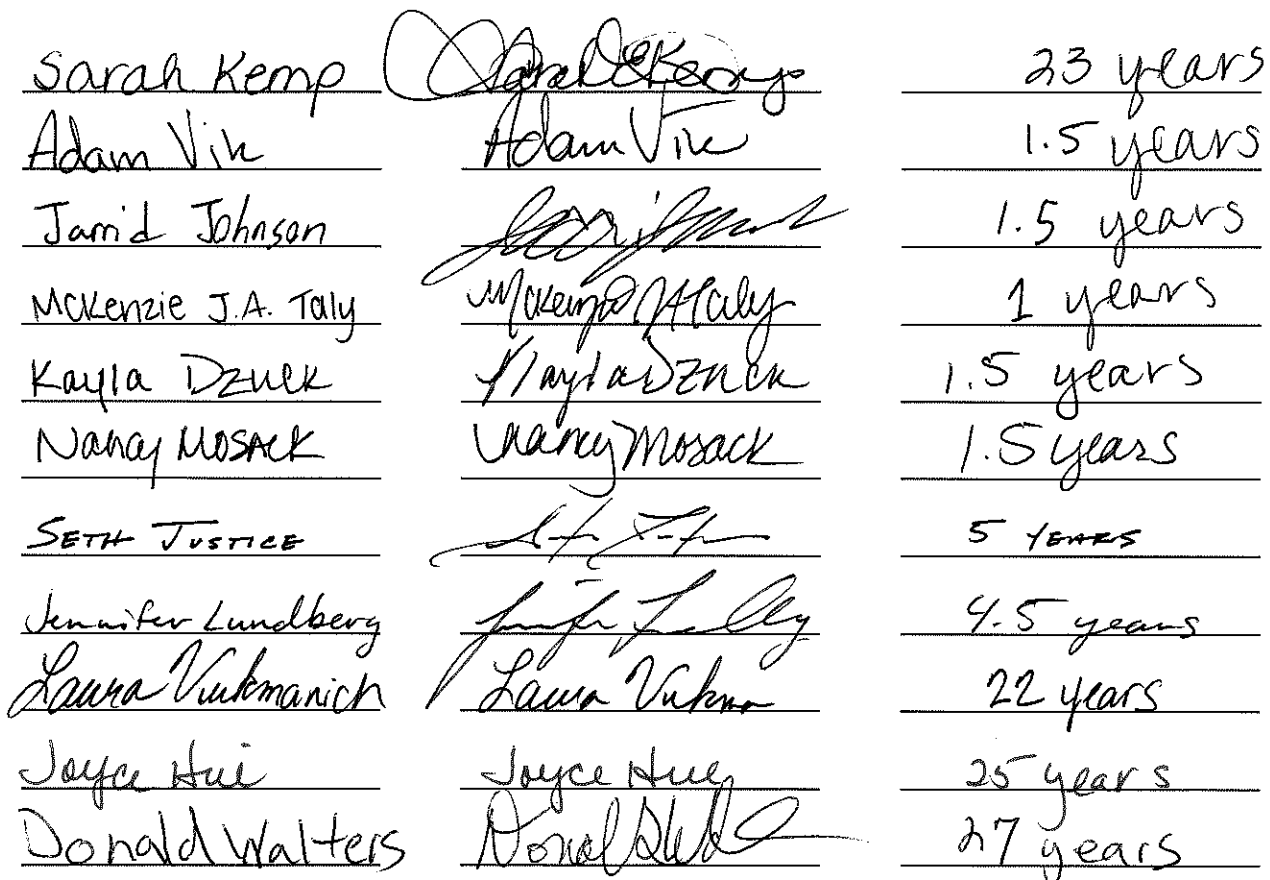 Sarah Kemp Sarah Kemp 23 years
Adam Vik Adam Vik 1.5 years
Jarrid Johnson 1.5 years
McKenzie J.A. Taly McKenzie J A Taly 1 years
Kayla Dzuck Kayla Dzuck 1.5 years
Nancy Mosack Nancy Mosack 1.5 years
Seth Justice 5 years
Jennifer Lundberg 4.5 years
Laura Vukmanich Laura 22 years
Joyce Hui Joyce 25 years
Donald Walters Donal 27 years